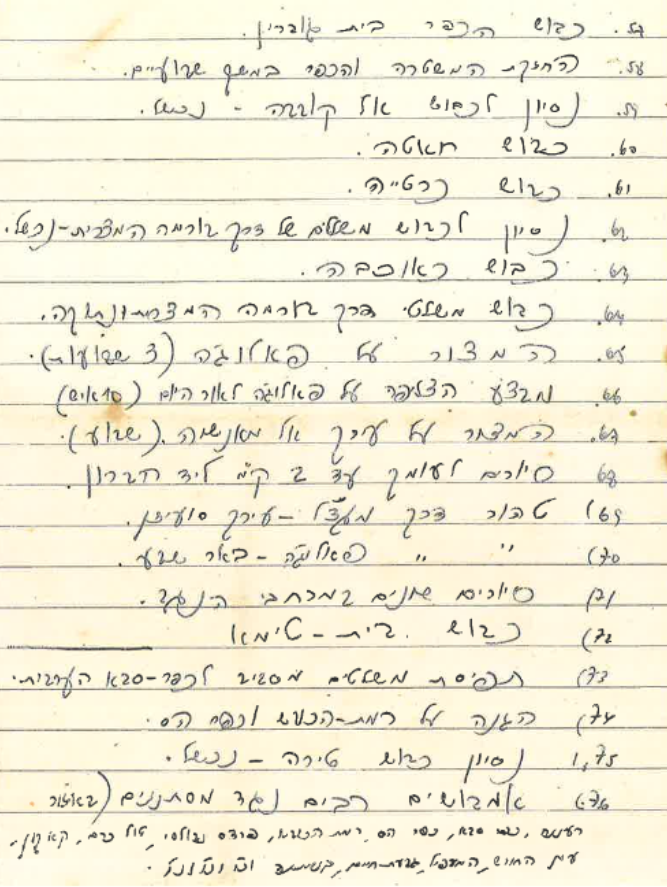 57. כבוש הכפר בית גוברין.
58. החזקת המשטרה והכפר במשך שבועיים.
59. נסיון לכבוש אל קובבה - נכשל.
60. כבוש חאטה.
61. כבוש כרטייה.
62. נסיון לכבוש משלטים של דרך בורמה המצרית-נכשל.
63. כבוש כאוכבה.
64. כבוש משלטי דרך בורמה המצרית וניתוקה.
65. המצור על פאלוג'ה (3 שבועות).
66. מבצע הצליפה על פאלוג'ה לאור היום (10 איש)
67. המצור על עירק אל מאנשיה. (שבוע).
68 סיורים לעומק עד 2 ק"מ ליד חברון.
69) טהור דרך מג'דל - עירק סועידן.
70) " " פאלוג'ה - באר שבע.
71) סיורים שונים במרחבי הנגב.
72) כבוש בית - טימא
73) תפיסת משלטים מסביב לכפר-סבא הערבית.
74) הגנה על רמת-הכובש וכפר הס.
75) נסיון כבוש טירה - נכשל.
76) אמבושים רבים נגד מסתננים (באזור
רעננה, כפר סבא, כפר הס, רמת הכובש, פרדס נבולסי, טול כרם, קאקון,
עין החורש, המעפיל, גבעת-חיים,